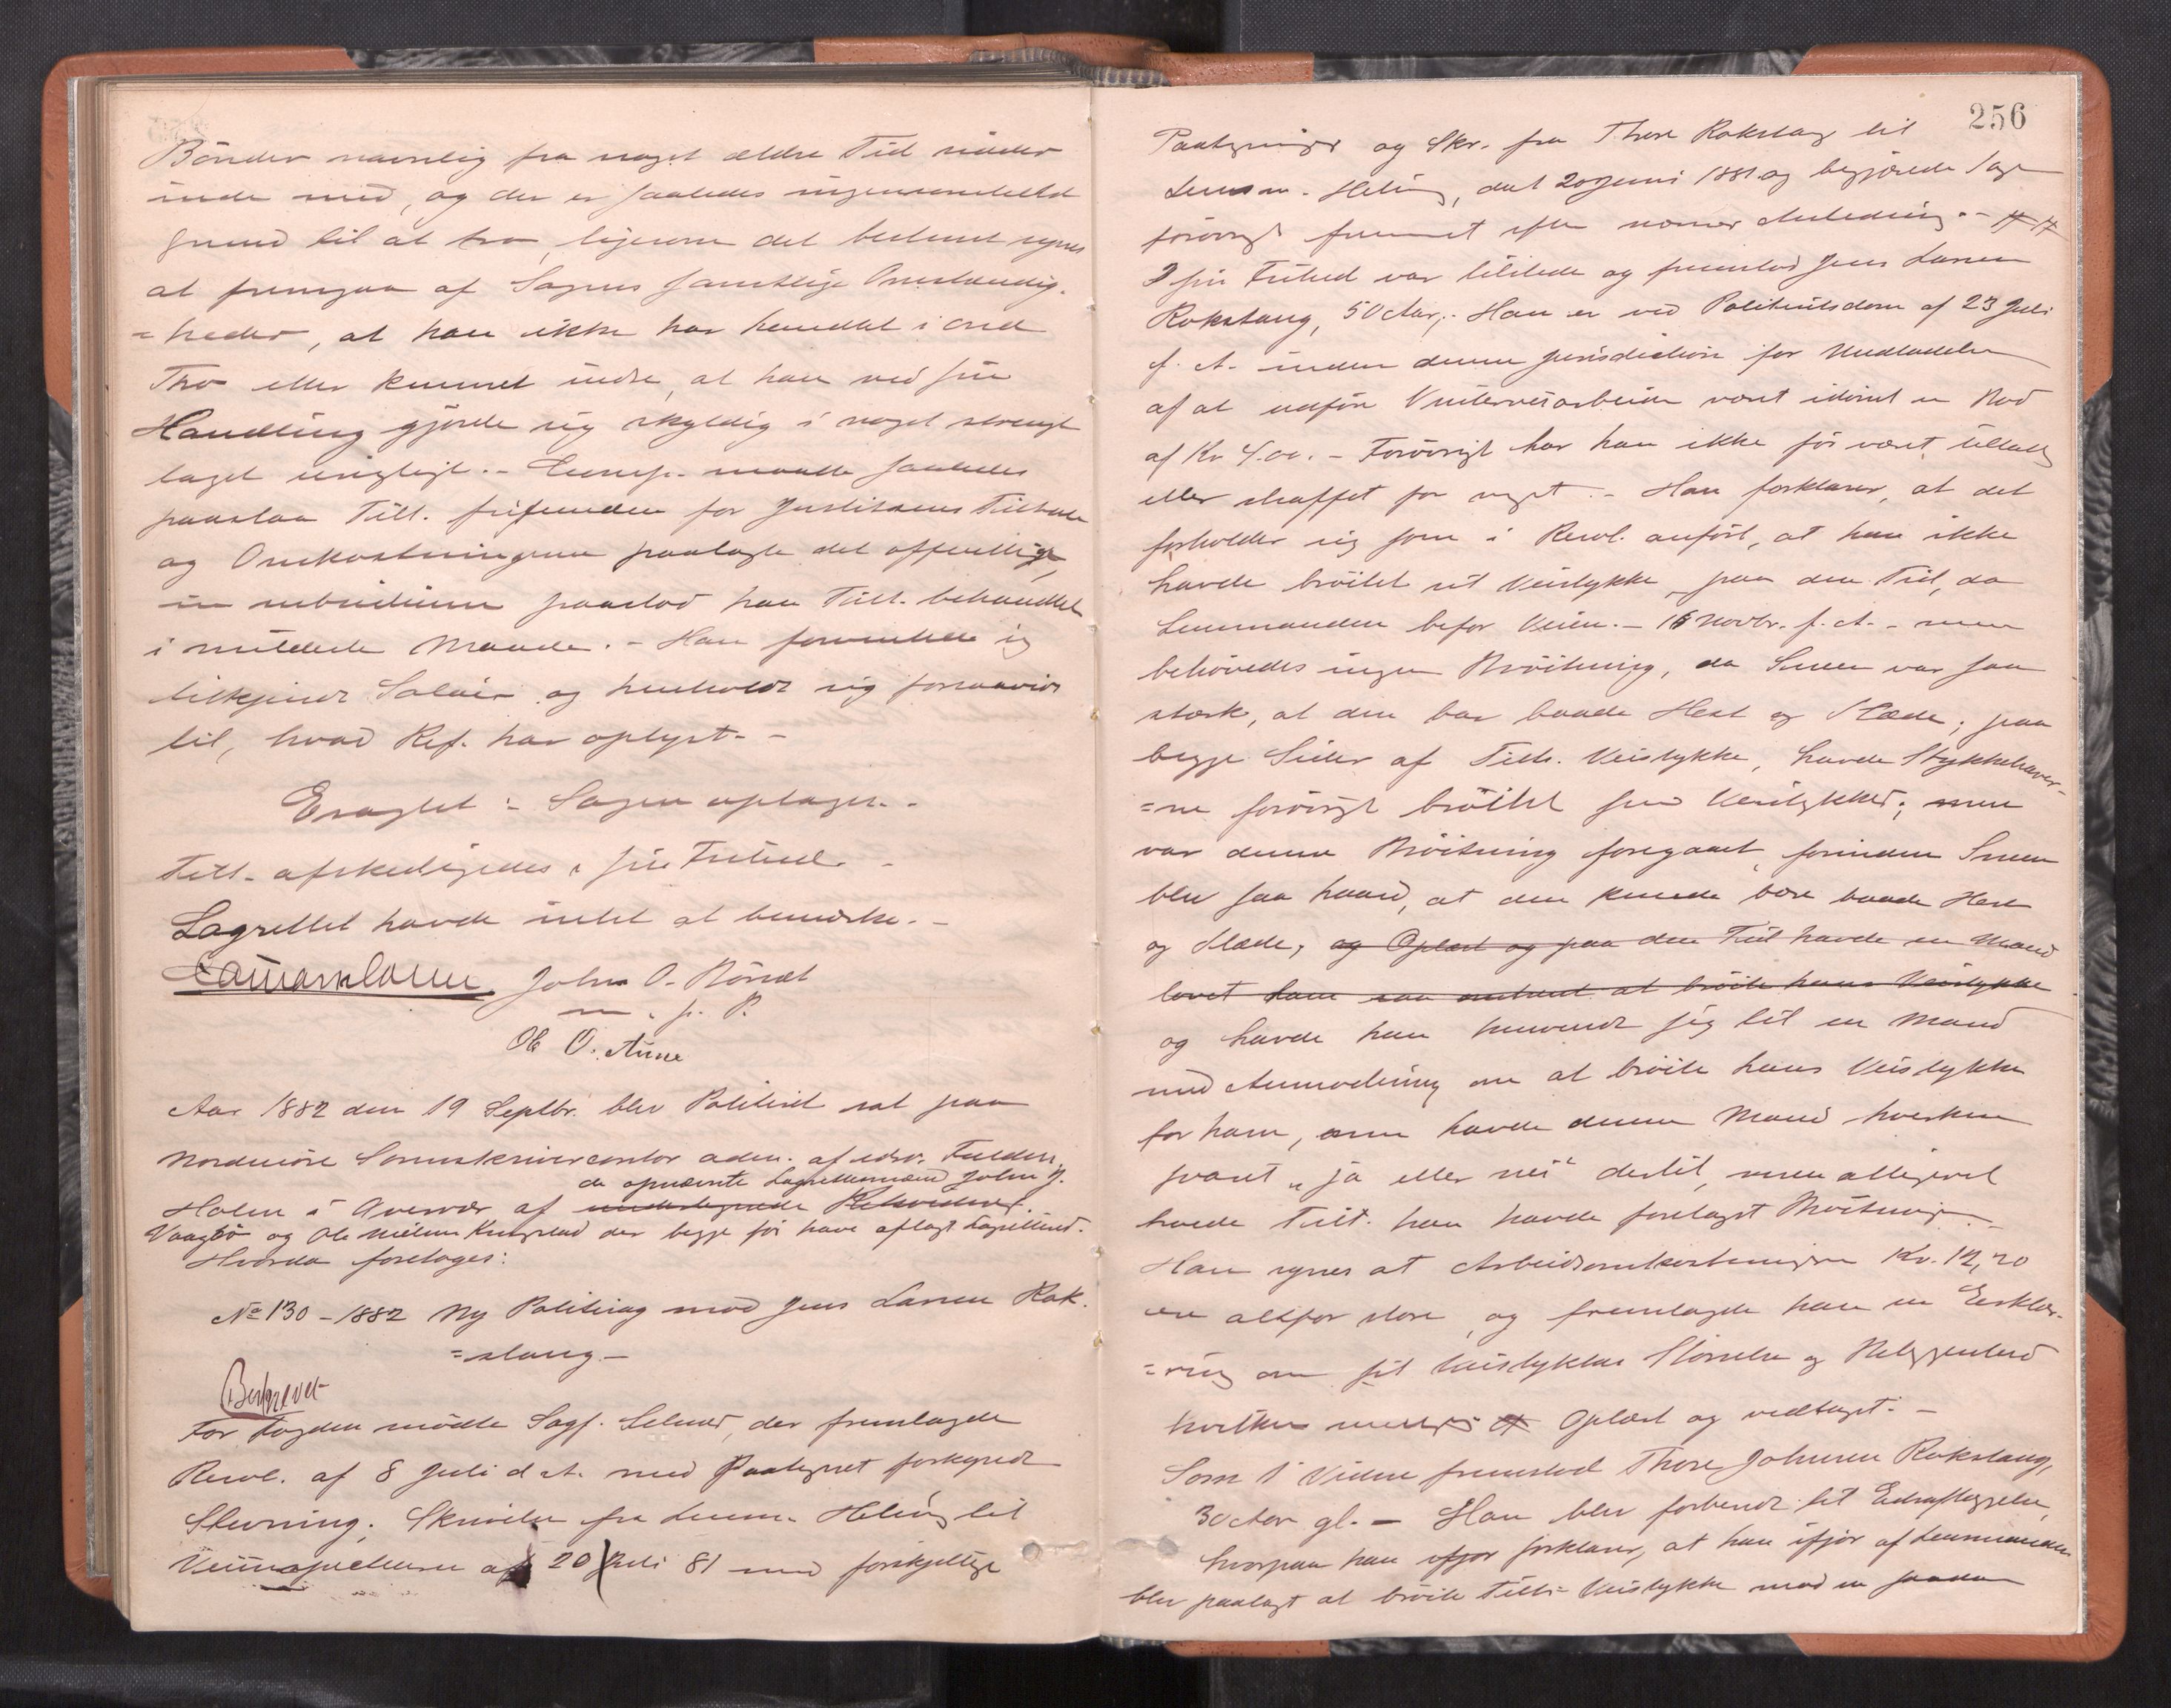 Bönder navnlig fra noget ældre Tid sidder
inde med, og der er saaledes ingensomhelst
Grund til at tro, ligesom det bestemt synes
at fremgaa af Sagens samtlige Omstændig-
=heder, at han ikke har handlet i ond
Tro eller kunnet indse, at han ved sin
Handling gjorde sig skyldig i noget strengt
taget urigtigt. - Comp. maatte saaledes
paastaa Tilt. frifunden for Justitiens Tiltale
og Omkostningerne paalagte det offentlige,
in subsidium paastod han Tilt. behandlet
i mildeste Maade. - Han formente sig
tilkjendt Salair og henholdt sig forøvrigt
til, hvad Ref. har oplyst. -
Eragtet: Sagen optages. -
Tilt. afskedigedes i sin Frihed. -
Lagrettet havde intet at bemærke. -
John O. Böndt
m. f. P.
Ole O. Aune
Aar 1882 den 19 Septbr. blev Politiret sat paa
Nordmöre Sorenskrivercontor adm. af edsv. Fuldm.
de opnævnte Lagrettemænd John J.
Holm i Overvær af undertegnede Retsvidner.
Vaagbö og Ole Nielsen der begge för have aflagt Lagretteed.
Hvorda foretoges:
No 130 - 1882 Ny Politisag mod Jens Larsen Rok-
=stang -
Beskrevet
For Fogden mödte Sagf. Selmer, der fremlagde
Resol. af 8 Juli d. A. med Paategnet forkyndt
Stevning, Skrivelse fra Lensm. Heling til
Veiinspektören af 20 Juli 81 med forskjellige
256
Paategninger og Skr. fra Thore Rokstang til
Lensm. Heling, dat 20 Juni 1881 og begjærede Sagen
forövrigt fremmet efter nærmere Anledning. -
I sin Frihed var tilstede og fremstod Jens Larsen
Rokstang, 50 Aar. - Han er ved Politiretsdom af 23 Juli
f. A. inden denne Jurisdiction for Undladelse
af at udföre Vinterveiarbeide været idömt en Bod
af Kr 4.00. - Forövrigt har han ikke för været tiltalt
eller straffet for noget. - Han forklarer, at det
forholder sig som i Resol. anfört, at han ikke
havde bröitet sit Veistykke paa den Tid, da
Lensmanden befor Veien - 16 Novbr. f. A. - men
behövedes ingen Bröitning, da Sneen var saa
stærk, at den bar baade Hest og Slæde; paa
begge Sider af Tilts. Veistykke, havde Stykkehaver-
=ne forövrigt bröitet sine Veistykker; men
var denne Bröitning foregaaet, forinden Sneen
blev saa haard, at den kunde bære baade Hest
og Slæde, og Oplæst og paa den Tid havde en Mand
lovet ham saa omtrent at bröite hans Veistykke
og havde han henvendt sig til en Mand
med Anmodning om at bröite hans Veistykke
for ham, men havde denne Mand hverken
svaret "ja eller nei" dertil, men alligevel
troede Tilt. han havde foretaget Bröitningen. -
Han synes at Arbeidsomkostningerne Kr. 12,20
ere altfor store, og fremlagde han en Erklæ-
=ring om sit Veistykkes Störrelse og Beliggenhed
Oplæst og vedtaget. -
Som 1 Vidne fremstod Thore Johnsen Rokstang,
30 Aar gl. - Han blev forberedt til Edsaflæggelse,
hvorpaa han ifjor forklarer, at han ifjor af Lensmanden
blev paalagt at bröite Tilts Veistykke mod en saadan